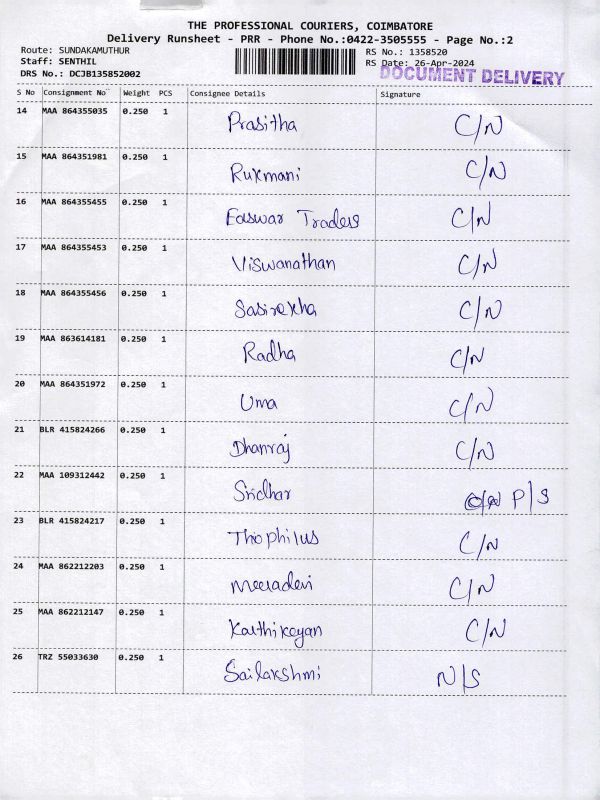 THE PROFESSIONAL COURIERS, COIMBATORE
Delivery Runsheet - PRR - Phone No.:0422-3505555 - Page No.:2
Route: SUNDAKAMUTHUR RS No.: 1358520
Staff: SENTHIL RS Date: 26-Apr-2024
DRS No.: DCJB135852002 DOCUMENT DELIVERY
S No Consignment No Weight PCS Consignee Details Signature
14 MAA 864355035 0.250 1 Prasitha C/N
15 MAA 864351981 0.250 1 Rukmani C/N
16 MAA 864355455 0.250 1 Easwar Traders C/N
17 MAA 864355453 0.250 1 Viswanathan C/N
18 MAA 864355456 0.250 1 Sasirekha C/N
19 MAA 863614181 0.250 1 Radha C/N
20 MAA 864351972 0.250 1 Uma C/N
21 BLR 415824266 0.250 1 Dhanraj C/N
22 MAA 109312442 0.250 1 Sridhar P/S
23 BLR 415824217 0.250 1 Thiophilus C/N
24 MAA 862212203 0.250 1 Meeradevi C/N
25 MAA 862212147 0.250 1 Karthikeyan C/N
26 TRZ 55033630 0.250 1 Sailakshmi N/S